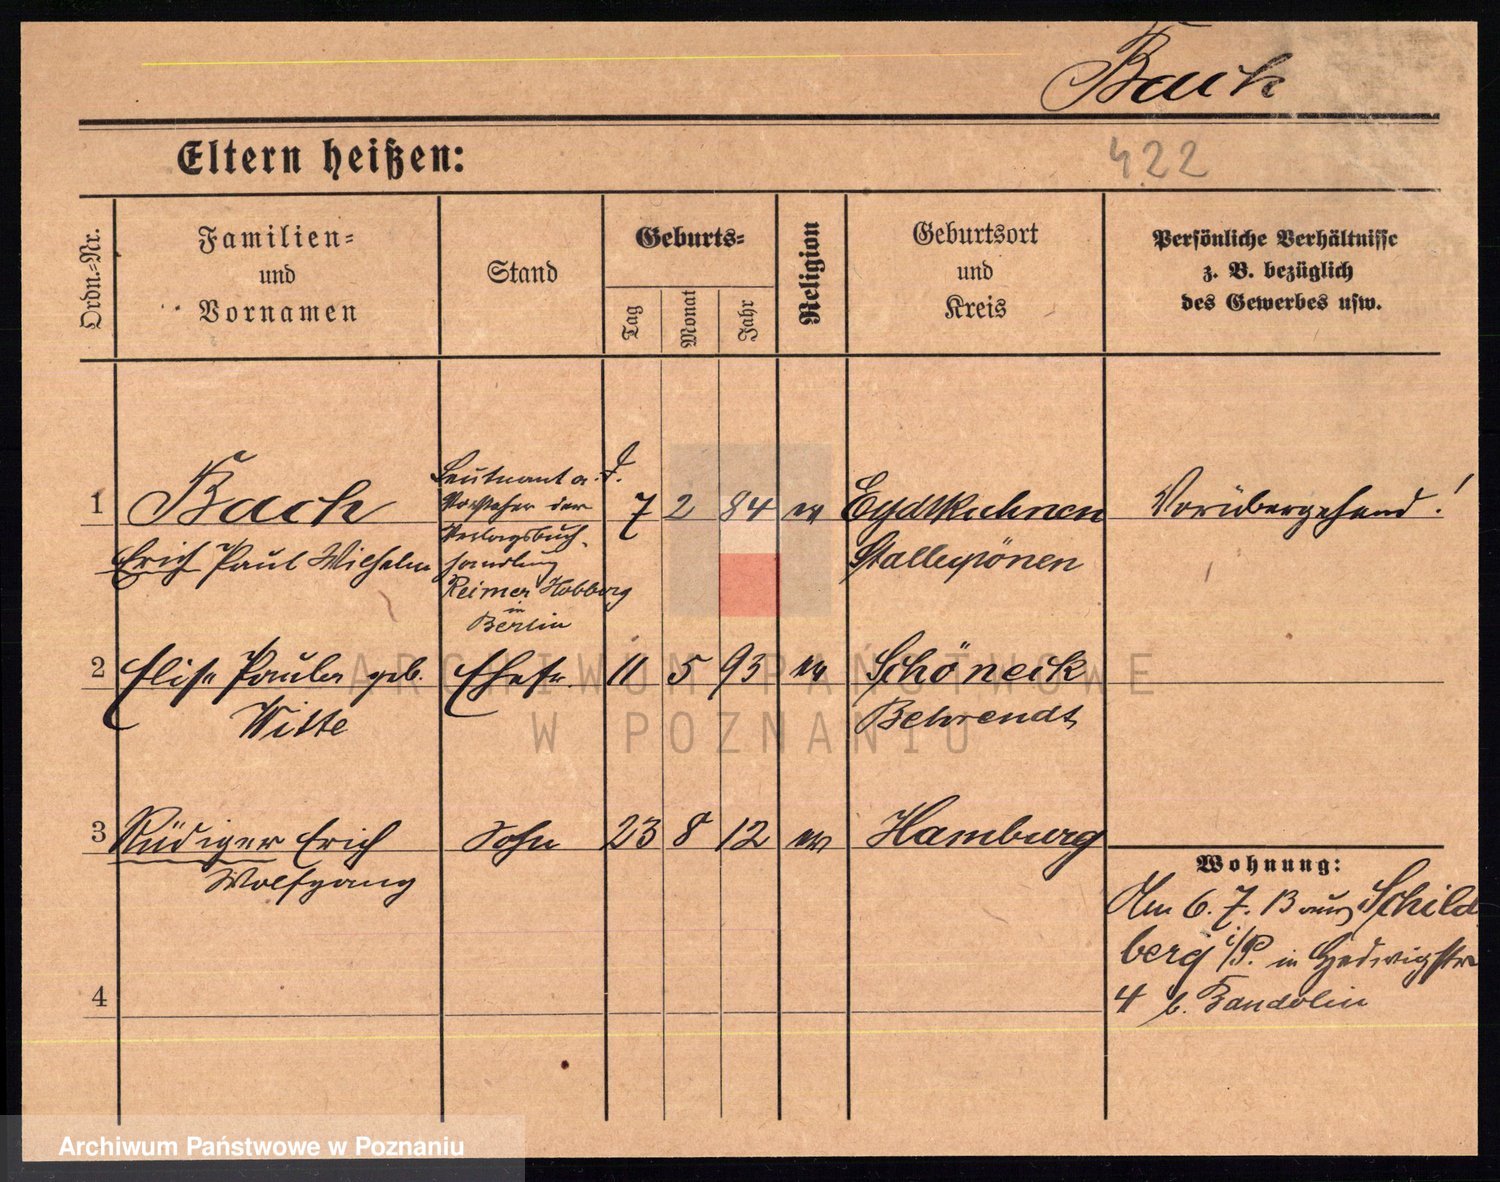 Bach
Eltern heißen:
422
Ordn.-Nr.
Familien-
und
Vornamen
Stand
Geburts-
Tag
Monat
Jahr
Religion
Geburtsort
und
Kreis
Persönliche Verhältnisse
z. B. bezüglich
des Gewerbes usw.
1
Bach
Erich Paul Wilhelm
Leutnant a. D.
Vorsteher der
Verlagsbuch-
handlung
Reimer Hobbing
in
Berlin
7 2 84 ev
Eydtkuhnen
Stallupönen
Vorübergehend!
2
Elise Paula geb.
Witte
Ehefr.
11 5 93 ev
Schöneck
Behrendt
3
Rüdiger Erich
Wolfgang
Sohn
23 8 12 ev
Hamburg
Wohnung:
Am 6. 7. 13 aus Schild
berg i/P. in Hedwigstr
4 b. Bandolin
4
ARCHIWUM PAŃSTWOWE
W POZNANIU
Archiwum Państwowe w Poznaniu